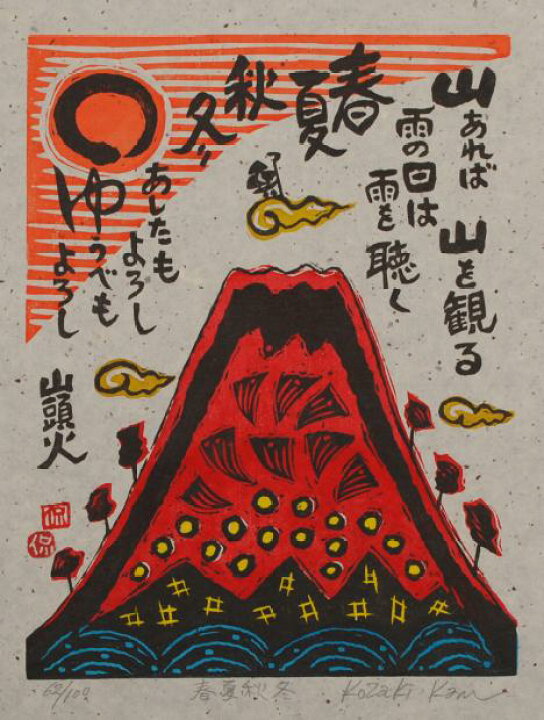 山あれば 山を観る
雨の日は
雨を聴く
春夏秋冬
あしたも
よろし
ゆうべも
よろし
山頭火
侃
侃
春夏秋冬
Kozaki Kan